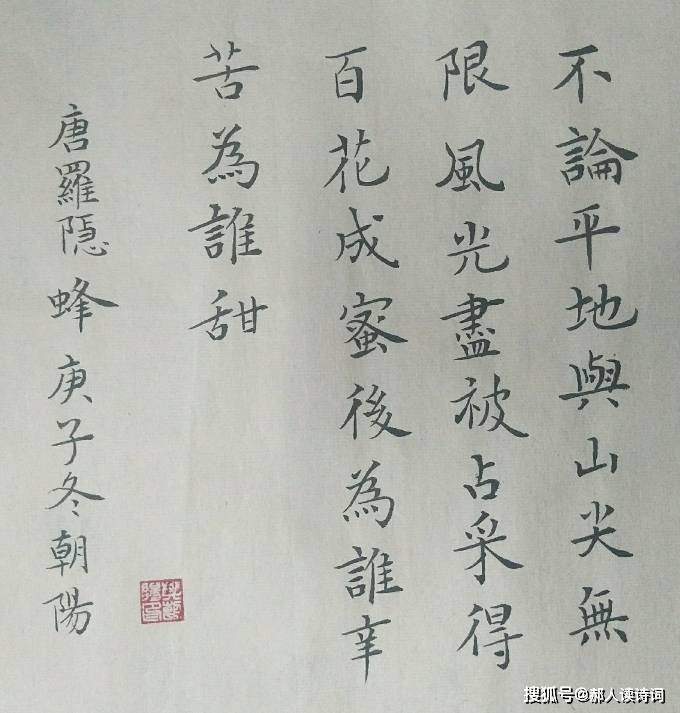 不論平地與山尖無
限風光盡被占采得
百花成蜜後為誰辛
苦為誰甜
唐羅隱蜂庚子冬朝陽
搜狐号@郝人读诗词